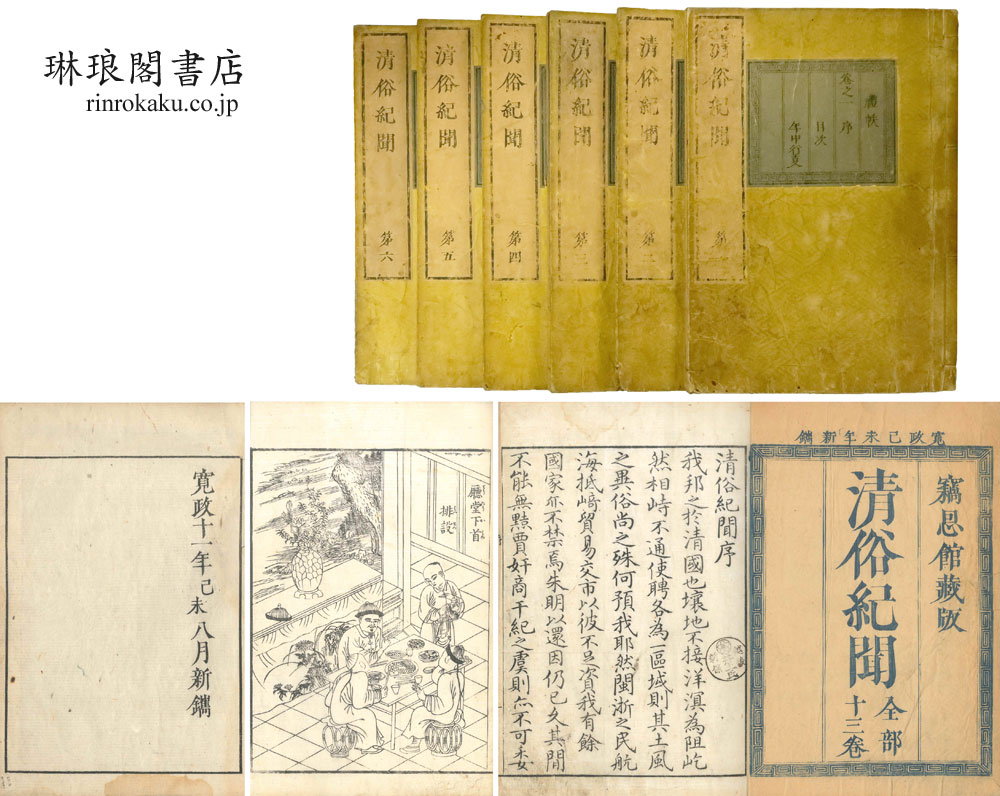 琳琅閣書店
rinrokaku.co.jp
清俗紀聞 第六
清俗紀聞 第五
清俗紀聞 第四
清俗紀聞 第三
清俗紀聞 第二
清俗紀聞 第
卷之一 序
目次
年中行事
寬政己未年新鐫
竊館藏版
清俗紀聞 全部十三卷
清俗紀聞序
我邦之於清國也壤地不接洋溟為阻屹
然相峙不通使聘各為一區域則其土風
之異俗尚之殊何預我耶然閩浙之民航
海抵崎貿易交市以彼不足資我有餘
國家亦不禁焉朱明以還因仍已久其間
不能無黠賈奸商干紀之虞則亦不可委
廳堂下首
排設
寛政十一年己未八月新鐫